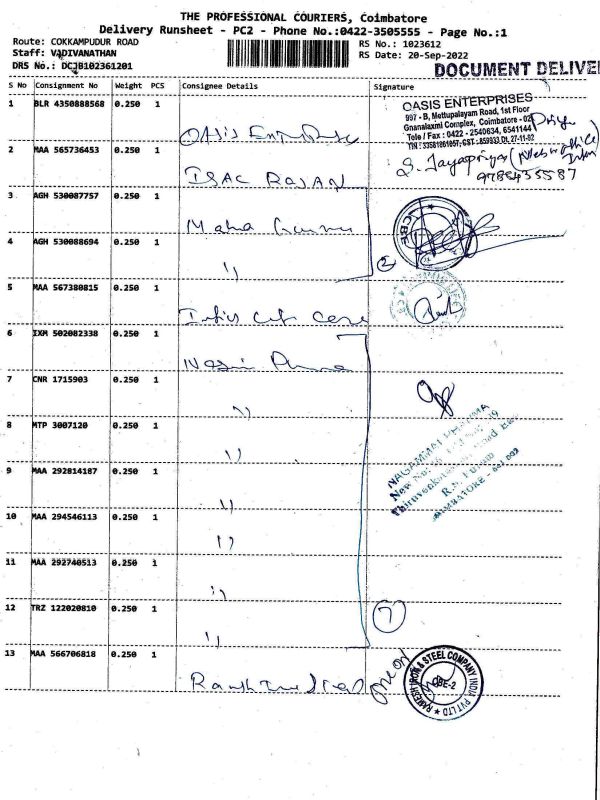 THE PROFESSIONAL COURIERS, Coimbatore
Delivery Runsheet - PC2 - Phone No.:0422-3505555 - Page No.:1
Route: COKKAMPUDUR ROAD
Staff: VADIVANATHAN
DRS No.: DCJB102361201
RS No.: 1023612
RS Date: 20-Sep-2022
DOCUMENT DELIVE
S No Consignment No Weight PCS Consignee Details Signature
1 BLR 4350888568 0.250 1 OASIS Enterprise
OASIS ENTERPRISES
997 - B, Mettupalayam Road, 1st Floor
Gnanalaxini Complex, Coimbatore - 02
Tele / Fax : 0422 - 2540634, 6541144
Priya
2 MAA 565736453 0.250 1 ISAC RAJAN
S. Jayapriya
3 AGH 530087757 0.250 1 Maha
4 AGH 530088694 0.250 1 "
2
5 MAA 567380815 0.250 1
6 IXM 502082338 0.250 1
7 CNR 1715903 0.250 1 "
8 MTP 3007120 0.250 1 "
NAGAMMAI PHARMA
9 MAA 292814187 0.250 1 "
10 MAA 294546113 0.250 1 "
11 MAA 292740513 0.250 1 "
12 TRZ 122020810 0.250 1 "
7
13 MAA 566706818 0.250 1
RAMESH IRON & STEEL COMPANY INDIA PVT LTD
CBE-2